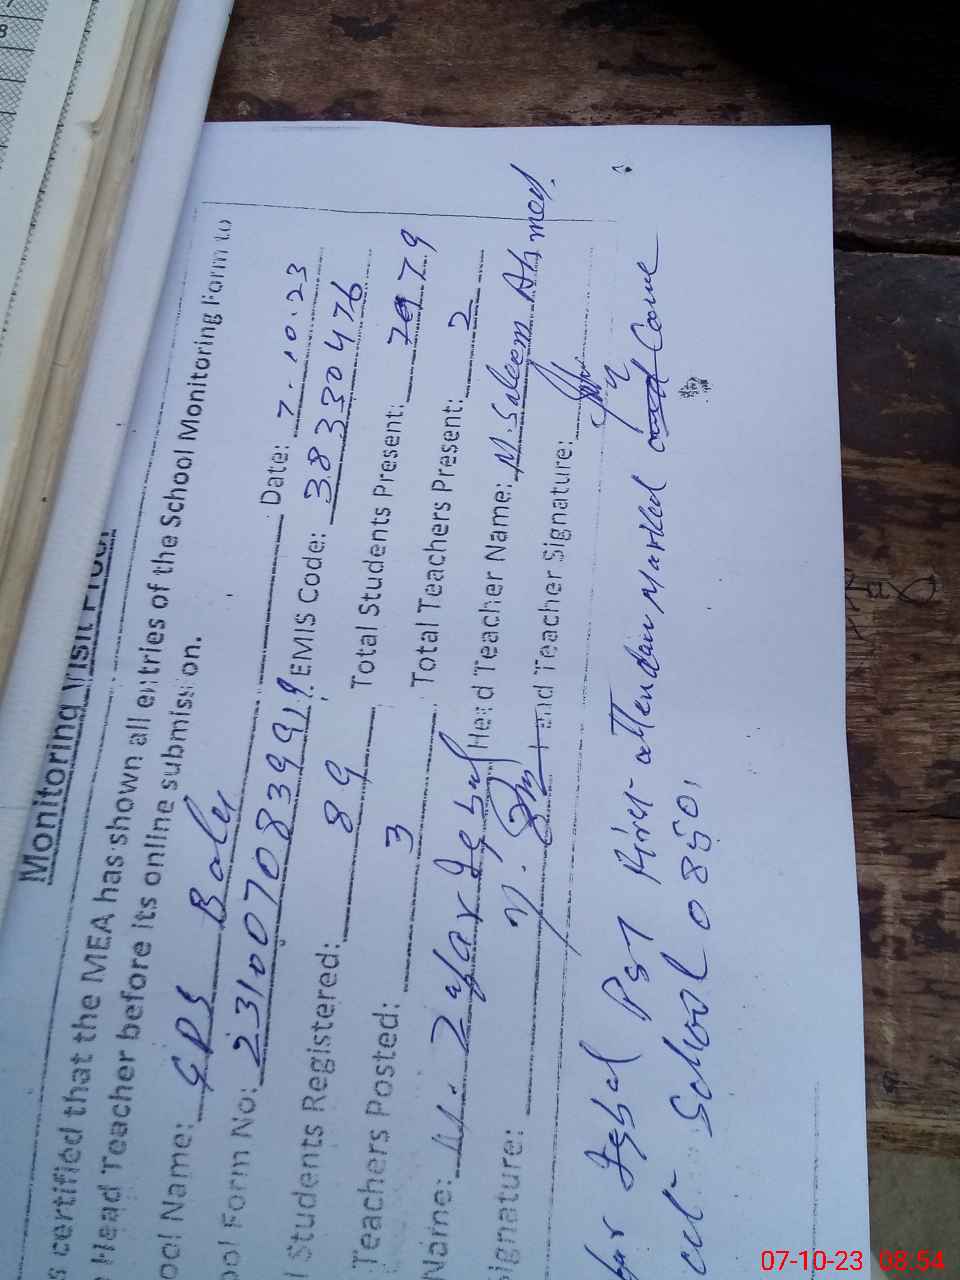 Monitoring Visit Proof
s certified that the MEA has shown all entries of the School Monitoring Form to
Head Teacher before its online submission.
ool Name: GPS Date: 7.10.23
ool Form No: EMIS Code: 38330476
l Students Registered: 89 Total Students Present: 79 79
Teachers Posted: 3 Total Teachers Present: 2
Name: M. Zafar Iqbal Head Teacher Name: M. Saleem Ahmed.
ignature: Head Teacher Signature:
far Iqbal PST First attendance Marked and Come
School 0850
07-10-23 08:54